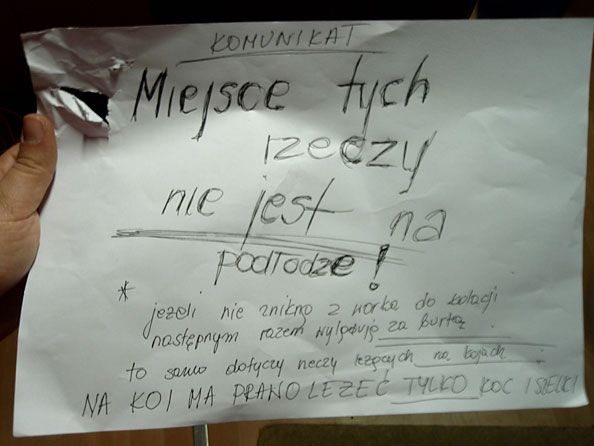 KOMUNIKAT
Miejsce tych
rzeczy
nie jest na
podłodze!
* jeżeli nie znikną z worka do kolacji
następnym razem wylądują za burtą.
to samo dotyczy rzeczy leżących na kojach.
NA KOI MA PRAWO LEŻEĆ TYLKO KOC I SIELKI